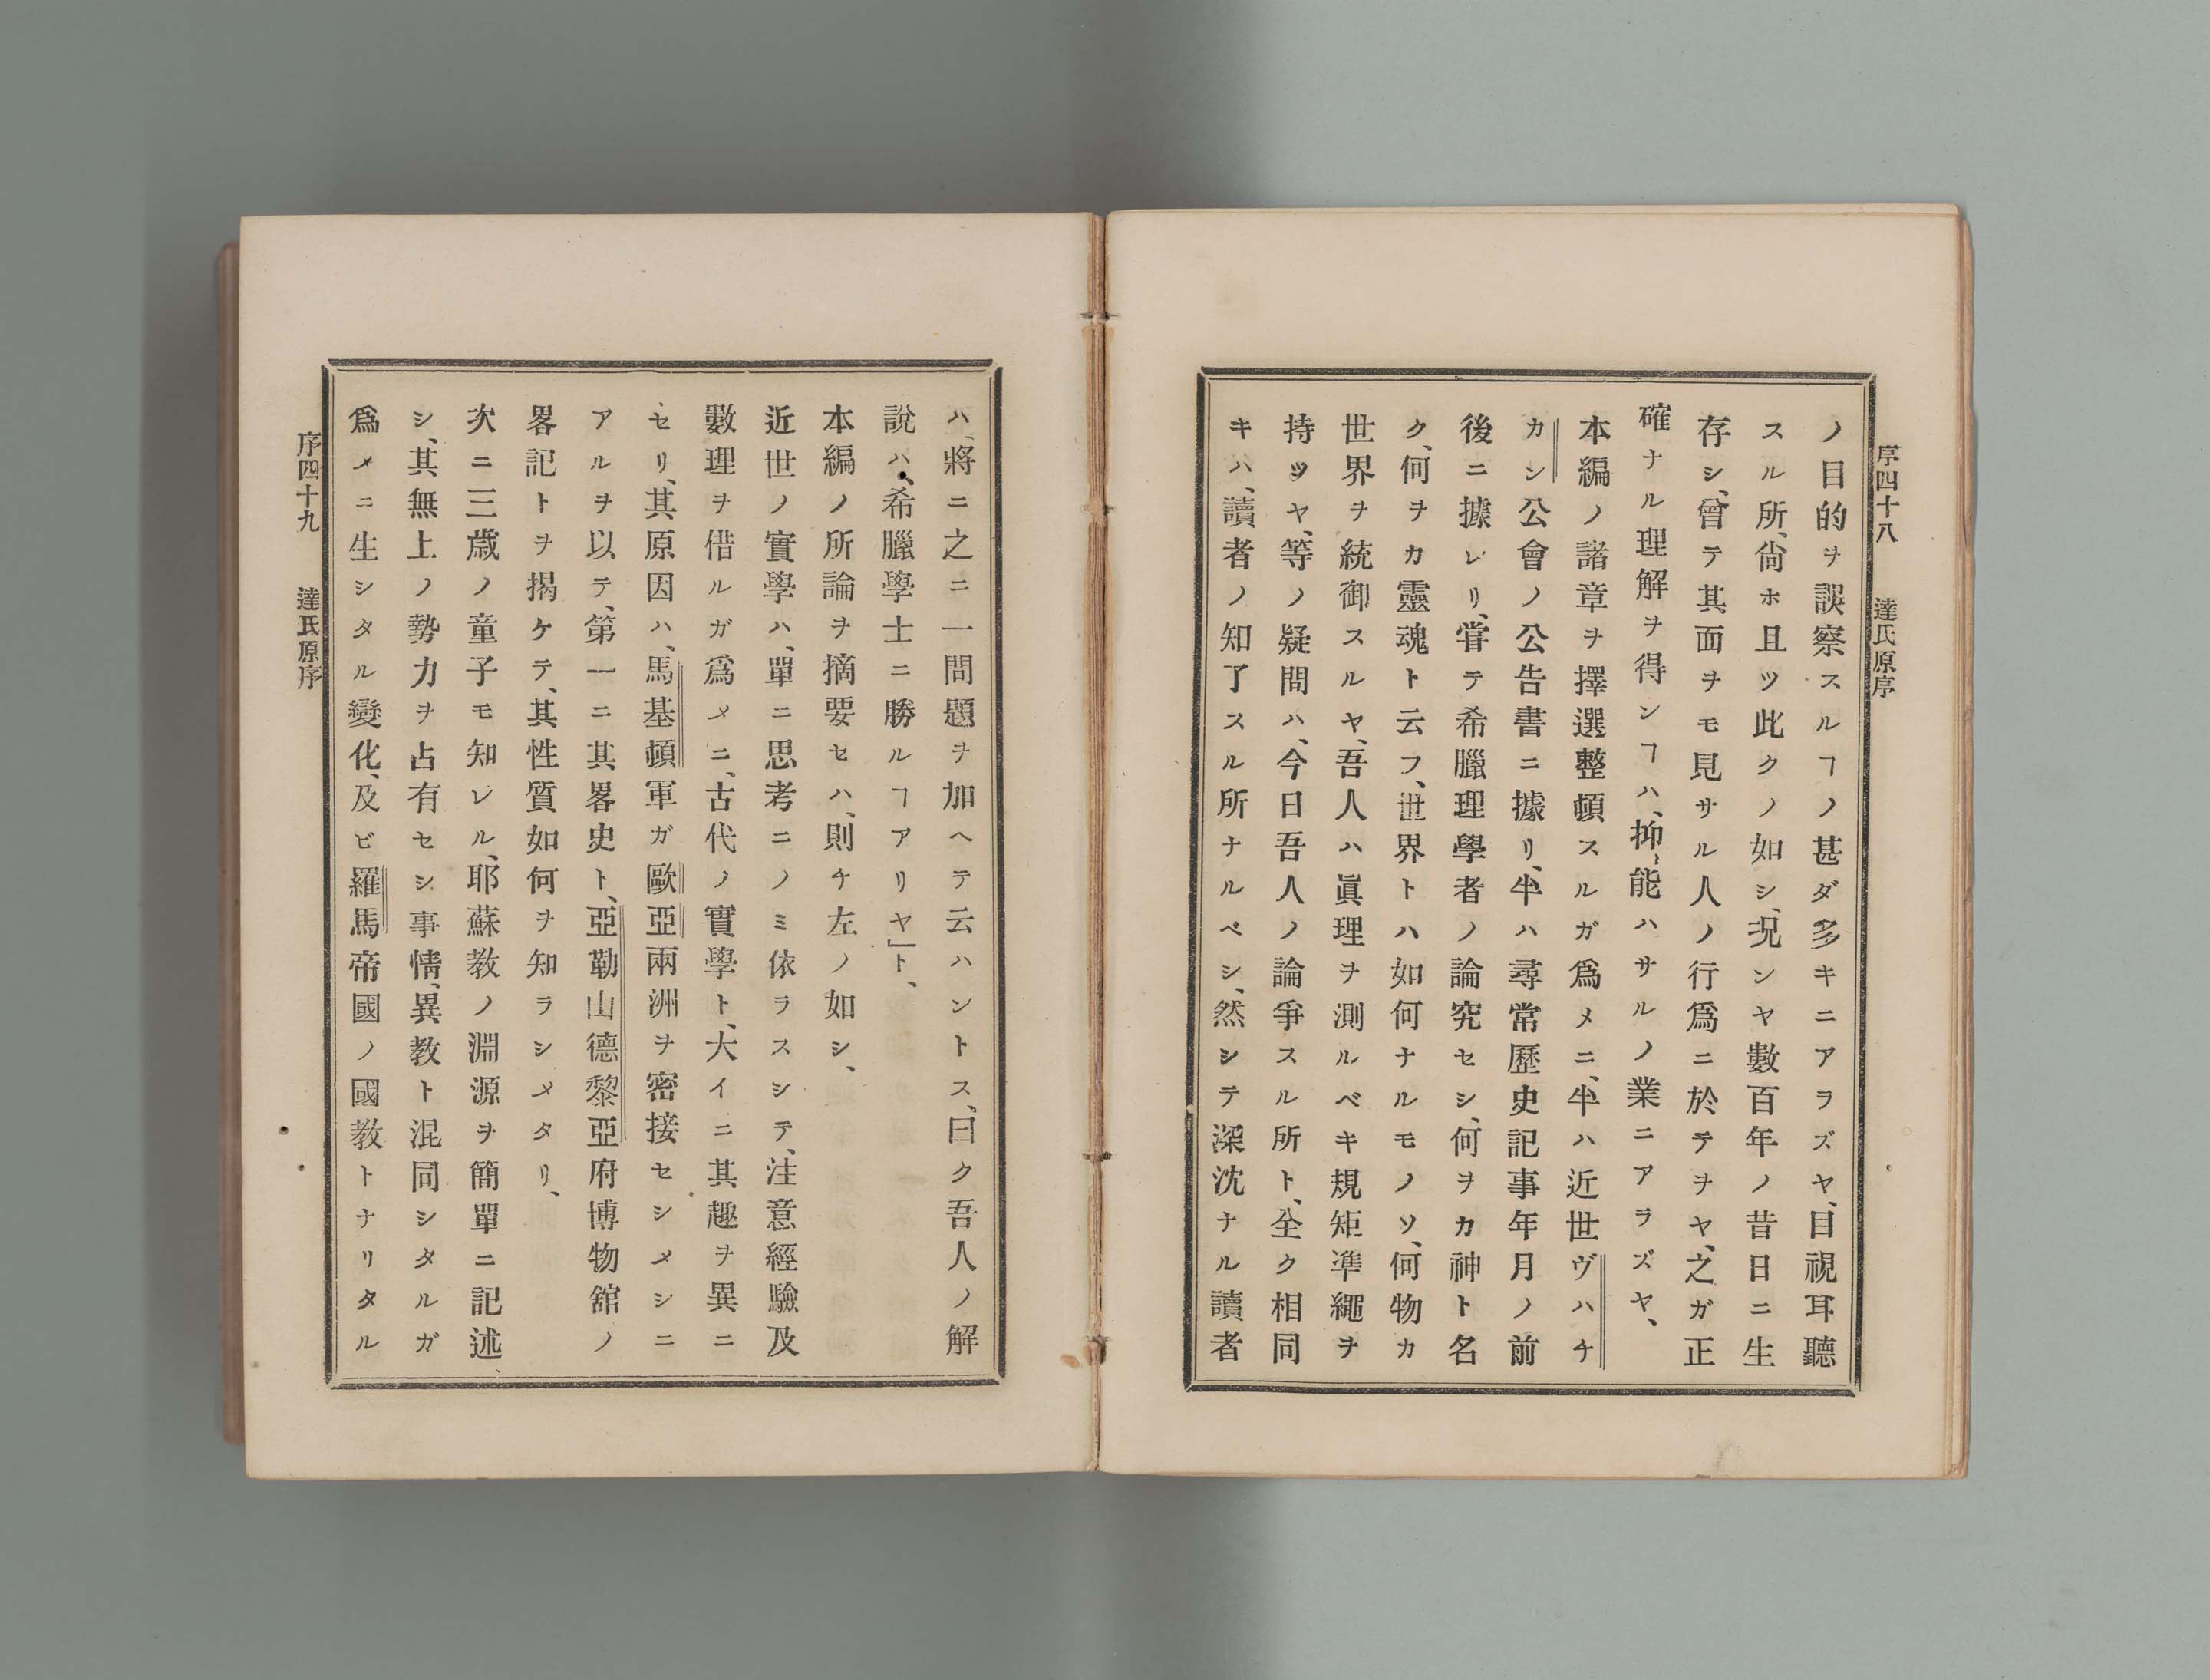 序四十八　達氏原序
ノ目的ヲ誤察スルヿノ甚ダ多キニアラズヤ、目視耳聽
スル所、尙ホ且ツ此クノ如シ、况ンヤ數百年ノ昔日ニ生
存シ、曾テ其面ヲモ見サル人ノ行爲ニ於テヲヤ、之ガ正
確ナル理解ヲ得ンヿハ、抑、能ハサルノ業ニアラズヤ、
本編ノ諸章ヲ擇選整頓スルガ爲メニ、半ハ近世ヴハチ
カン公會ノ公告書ニ據リ、半ハ尋常歷史記事年月ノ前
後ニ據レリ、甞テ希臘理學者ノ論究セシ、何ヲカ神ト名
ク、何ヲカ靈魂ト云フ、世界トハ如何ナルモノソ、何物カ
世界ヲ統御スルヤ、吾人ハ眞理ヲ測ルベキ規矩準繩ヲ
持ツヤ、等ノ疑問ハ、今日吾人ノ論爭スル所ト、全ク相同
キハ、讀者ノ知了スル所ナルベシ、然シテ深沈ナル讀者
ハ、將ニ之ニ一問題ヲ加ヘテ云ハントス、曰ク吾人ノ解
說ハ、希臘學士ニ勝ルヿアリヤ」ト、
本編ノ所論ヲ摘要セハ、則チ左ノ如シ、
近世ノ實學ハ、單ニ思考ニノミ依ラスシテ、注意經驗及
數理ヲ借ルガ爲メニ、古代ノ實學ト、大イニ其趣ヲ異ニ
セリ、其原因ハ、馬基頓軍ガ歐亞兩洲ヲ密接セシメシニ
アルヲ以テ、第一ニ其畧史ト、亞勒山德黎亞府博物舘ノ
畧記トヲ揭ケテ、其性質如何ヲ知ラシメタリ、
次ニ三歲ノ童子モ知レル、耶蘇教ノ淵源ヲ簡單ニ記述
シ、其無上ノ勢力ヲ占有セシ事情、異教ト混同シタルガ
爲メニ生シタル變化、及ビ羅馬帝國ノ國教トナリタル
序四十九　達氏原序